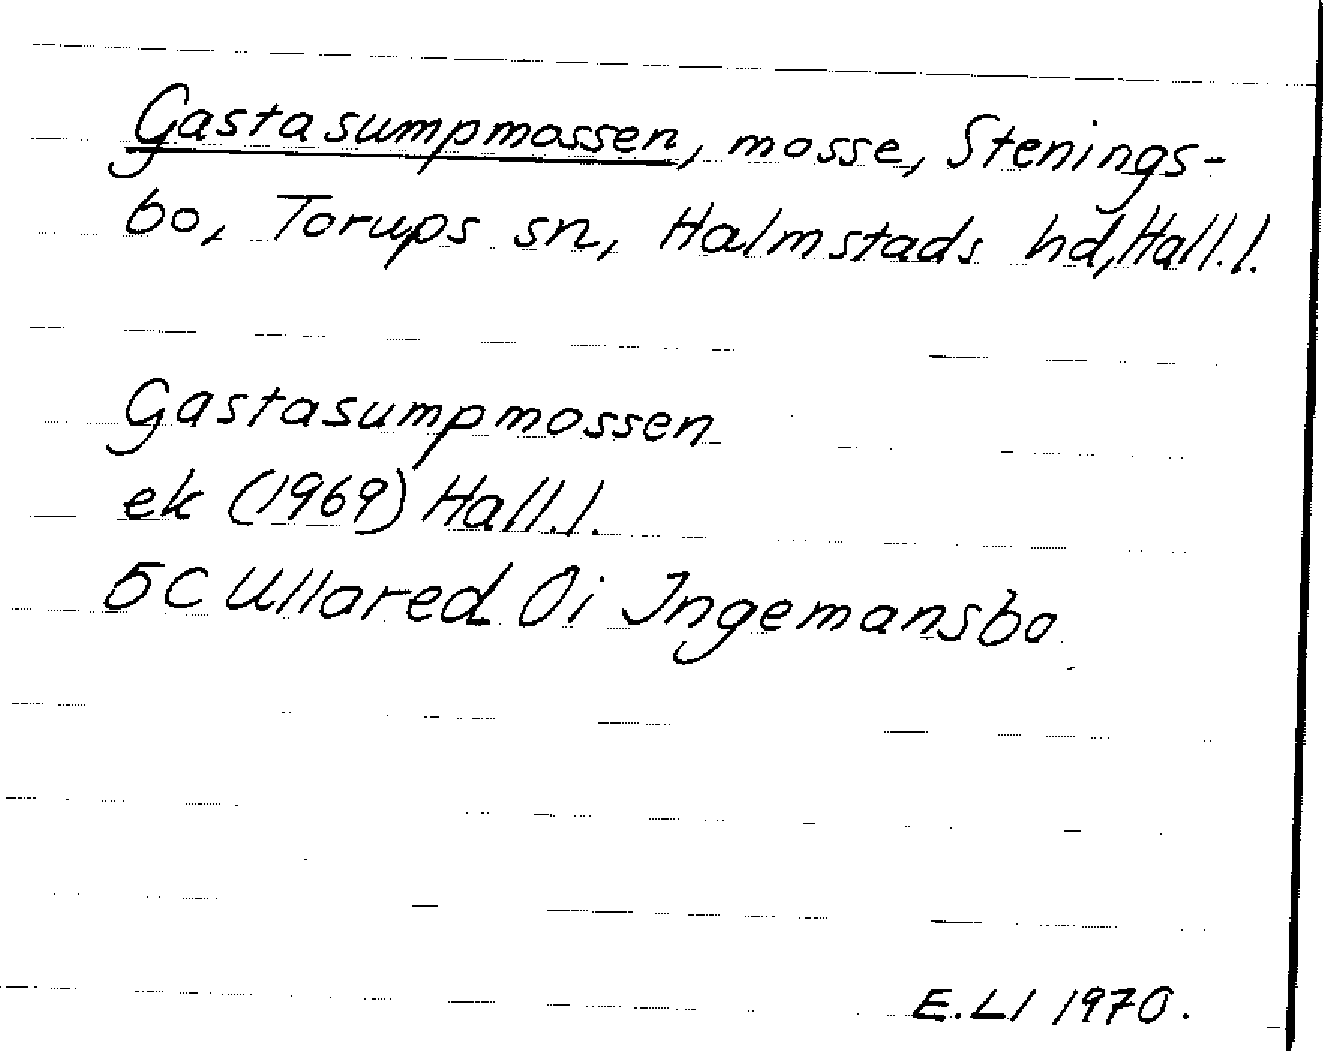 Gastasumpmossen, mosse, Stenings-
bo, Torups sn, Halmstads hd, Hall.l.
Gastasumpmossen
ek (1969) Hall.l.
5C Ullared 0i Ingemansbo
E.LI 1970.